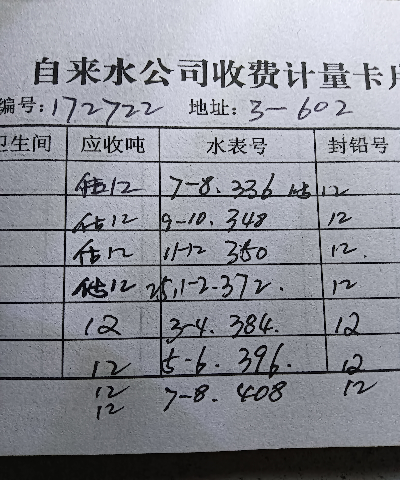 自来水公司收费计量卡
编号:172722 地址:3-602
卫生间 应收吨 水表号 封铅号
估12 7-8. 336 估12
估12 9-10. 348 12
估12 11-12 360 12.
估12 25,1-2-372. 12
12 3-4. 384. 12
12 5-6. 396. 12
12 7-8. 408 12
12